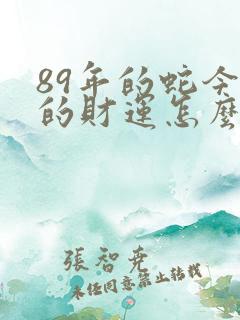 89年的蛇今
的財運怎麼
張智堯
未经同意禁止转载